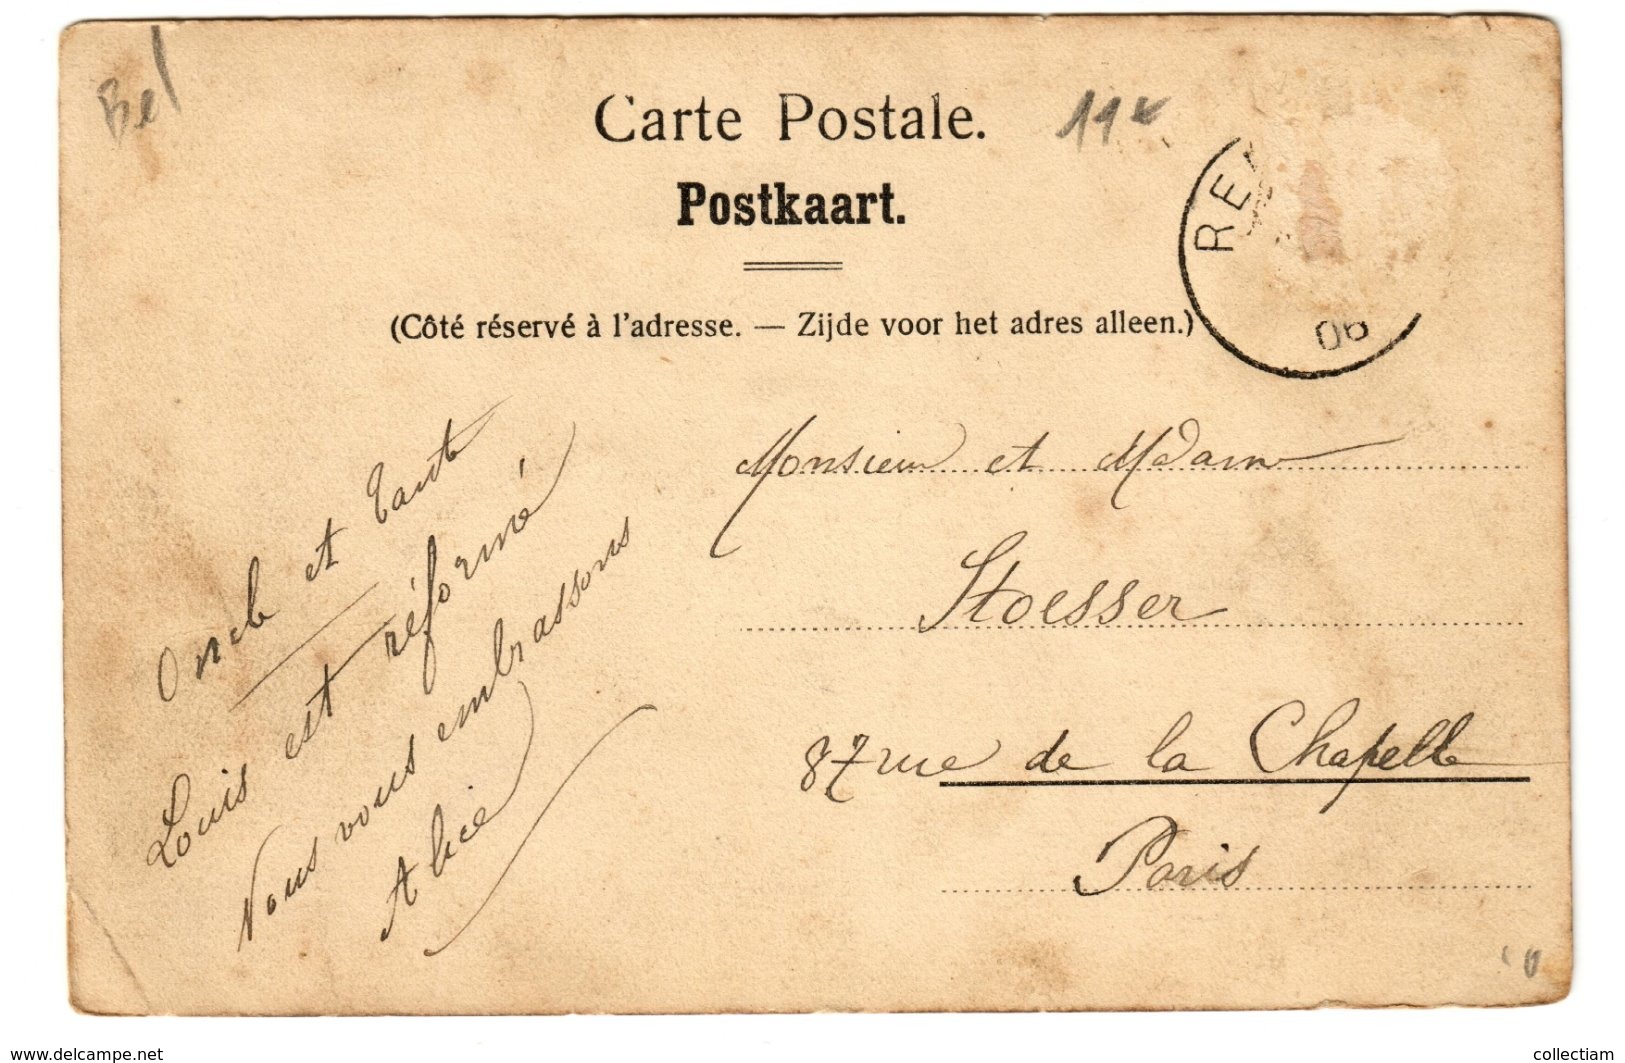 Bel
Carte Postale.
11
Postkaart.
RE
06
(Côté réservé à l'adresse. — Zijde voor het adres alleen.)
Oncle et Tante
Louis est réformé
Nous vous embrassons
Alice
Monsieur et Mdame
Stoesser
87 rue de la Chapelle
Paris
www.delcampe.net
collectiam